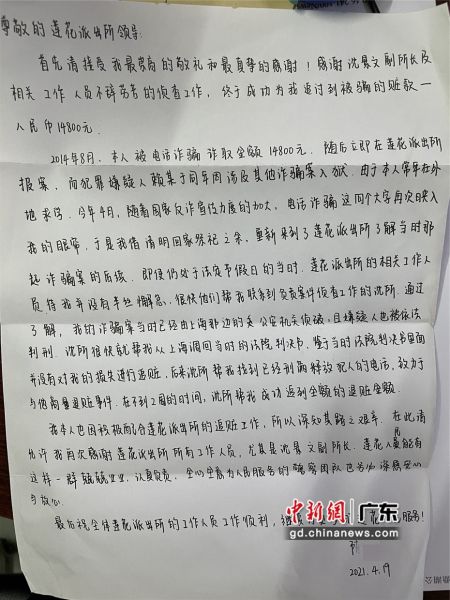 尊敬的莲花派出所领导:
首先请接受我最崇高的敬礼和最真挚的感谢!感谢沈景文副所长及
相关工作人员不辞劳苦的侦查工作,终于成功为我追讨到被骗的赃款一
人民币14800元.
2014年8月,本人被电话诈骗诈取金额14800元.随后立即在莲花派出所
报案,而犯罪嫌疑人赖某于同年周涉及其他诈骗案入狱.由于本人常年在外
地求学.今年4月,随着国家反诈宣传力度的加大,电话诈骗这四个大字再次映入
我的眼帘,于是我借清明回家祭祀之余,重新来到了莲花派出所了解当时那
起诈骗案的后续.即便仍处于法定节假日的当时,莲花派出所的相关工作人
员待我并没有半班懈怠,很快他们帮我联系到负责案件侦查工作的沈所.通过
了解,我的诈骗案当时已经由上海那边的公安机关侦破,且嫌疑人也被依法
判刑.沈所很快就帮我从上海调回当时的法院判决书.鉴于当时法院判决书里面
并没有对我的损失进行追赃,后来沈所帮我找到已经刑满释放犯人的电话,致力于
与他商量退赃事件.在不到2周的时间,沈所帮我成功追到全额的退赃金额.
我本人也因积极配合莲花派出所的追赃工作,所以深知其路之艰辛.在此请
允许我再次感谢莲花派出所所有工作人员,尤其是沈景文副所长.莲花人民能有
这样一群兢兢业业,认真负责.全心全意为人民服务的警察团队也分外深感安心
与放心.
最后祝全体莲花派出所的工作人员工作顺利,继续
服务!
2021.4.19
中新网 广东
gd.chinanews.com